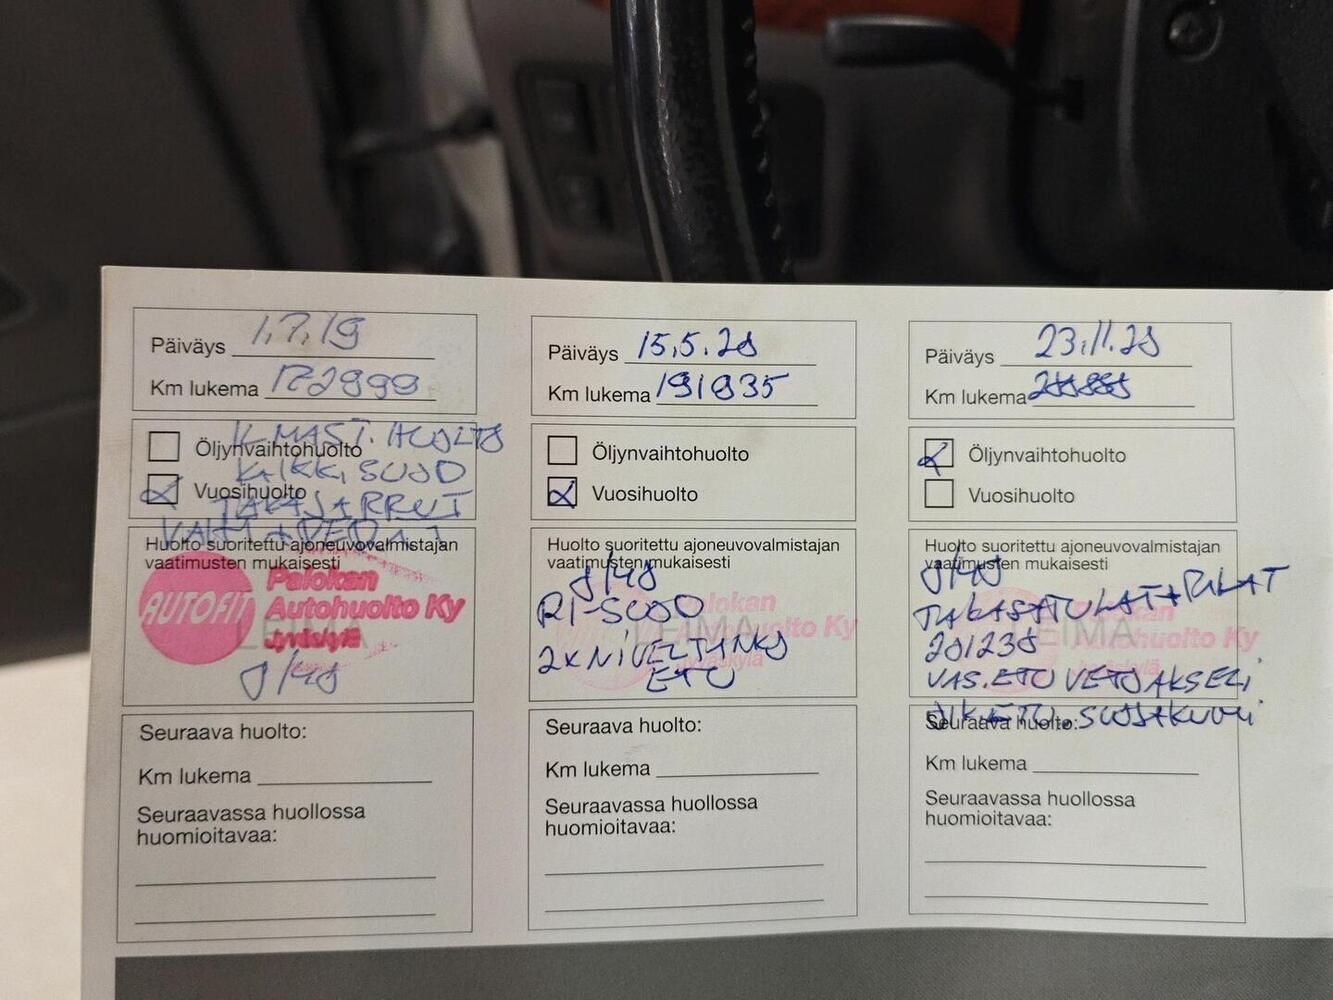 Päiväys 1.7.19
Km lukema 172999
Öljynvaihtohuolto
ILMAST. HUOLTO
KAIKKI SUOD
Vuosihuolto
TAKAJARRUT
Huolto suoritettu ajoneuvovalmistajan
vaatimusten mukaisesti
AUTOFIT
Palokan
Autohuolto Ky
Jyväskylä
LEIMA
Seuraava huolto:
Km lukema
Seuraavassa huollossa
huomioitavaa:
Päiväys 15.5.20
Km lukema 191935
Öljynvaihtohuolto
Vuosihuolto
Huolto suoritettu ajoneuvovalmistajan
vaatimusten mukaisesti
RI-SUOD
2X NIVELTANKO
ETU
LEIMA
Palokan
Autohuolto Ky
Jyväskylä
Seuraava huolto:
Km lukema
Seuraavassa huollossa
huomioitavaa:
Päiväys 23.11.20
Km lukema
Öljynvaihtohuolto
Vuosihuolto
Huolto suoritettu ajoneuvovalmistajan
vaatimusten mukaisesti
TAKASATULAT+PALAT
201238
VAS.ETU VETOAKSELI
OIK.ETU. SUOJAKUMI
LEIMA
Palokan
Autohuolto Ky
Jyväskylä
Seuraava huolto:
Km lukema
Seuraavassa huollossa
huomioitavaa: